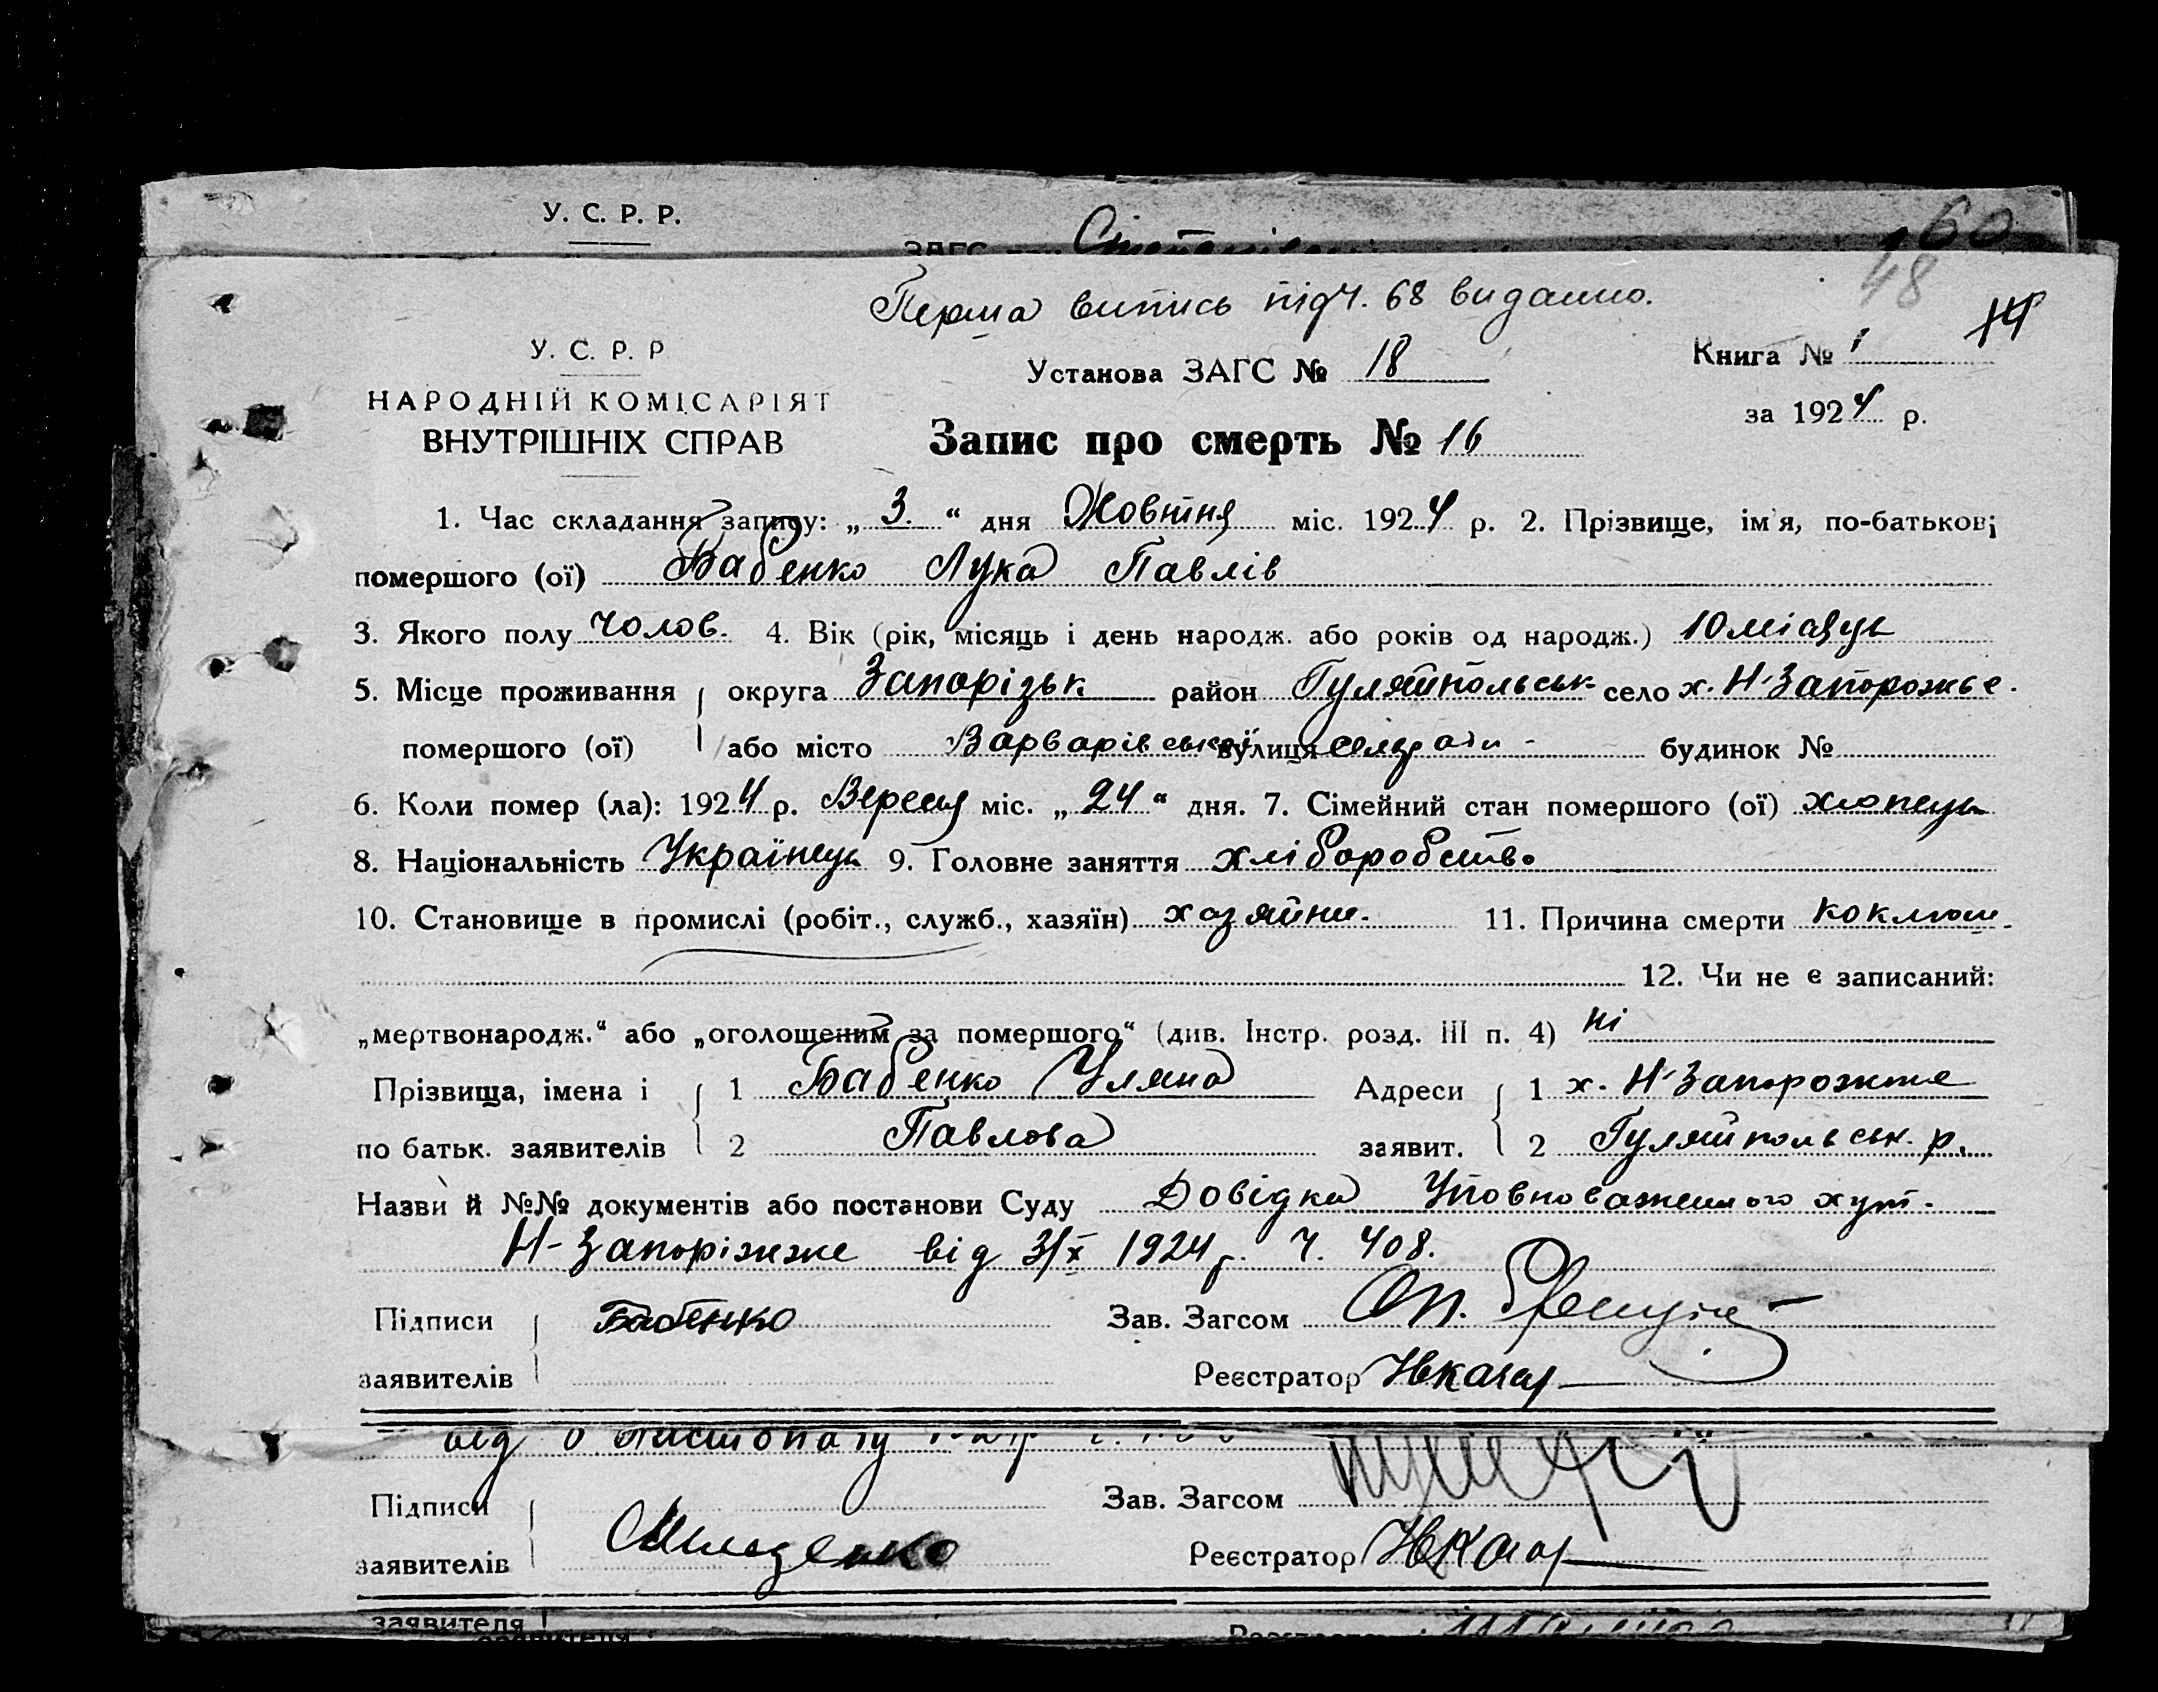 У. С. Р. Р.
ЗАГС
60
48
Перша випись підч. 68 видано.
У. С. Р. Р
Установа ЗАГС № 18
Книга № 1
НАРОДНІЙ КОМІСАРІЯТ
за 1924 р.
ВНУТРІШНІХ СПРАВ
Запис про смерть № 16
1. Час складання запису: „ 3. “ дня Жовтня міс. 1924 р. 2. Прізвище, ім'я, по-батькові
помершого (ої) Бабенко Лука Павлів
3. Якого полу чолов. 4. Вік (рік, місяць і день народж. або років од народж.) 10 місяць
5. Місце проживання округа Запорізьк район Гуляйпольськ село х. Н-Запорожье.
помершого (ої) або місто Варварівської вулиця сельради - будинок №
6. Коли помер (ла): 1924 р. Вересня міс. „ 24 “ дня. 7. Сімейний стан помершого (ої) хлопець
8. Національність Українець 9. Головне заняття хліборобство
10. Становище в промислі (робіт., служб., хазяїн) хазяйни. 11. Причина смерти коклюш.
12. Чи не є записаний:
„мертвонародж.“ або „оголошеним за помершого“ (див. Інстр. розд. III п. 4) ні
Прізвища, імена і 1 Бабенко Уляна Адреси 1 х. Н-Запорожже
по батьк. заявителів 2 Павлова заявит. 2 Гуляйпольськ. р.
Назви й №№ документів або постанови Суду Довідка Уповноваженого хут.
Н-Запоріжже від 3/X 1924 р. Ч. 408.
Підписи Бабенко Зав. Загсом
заявителів Реєстратор
від Листопаду
Підписи Зав. Загсом
заявителів Реєстратор
заявителя